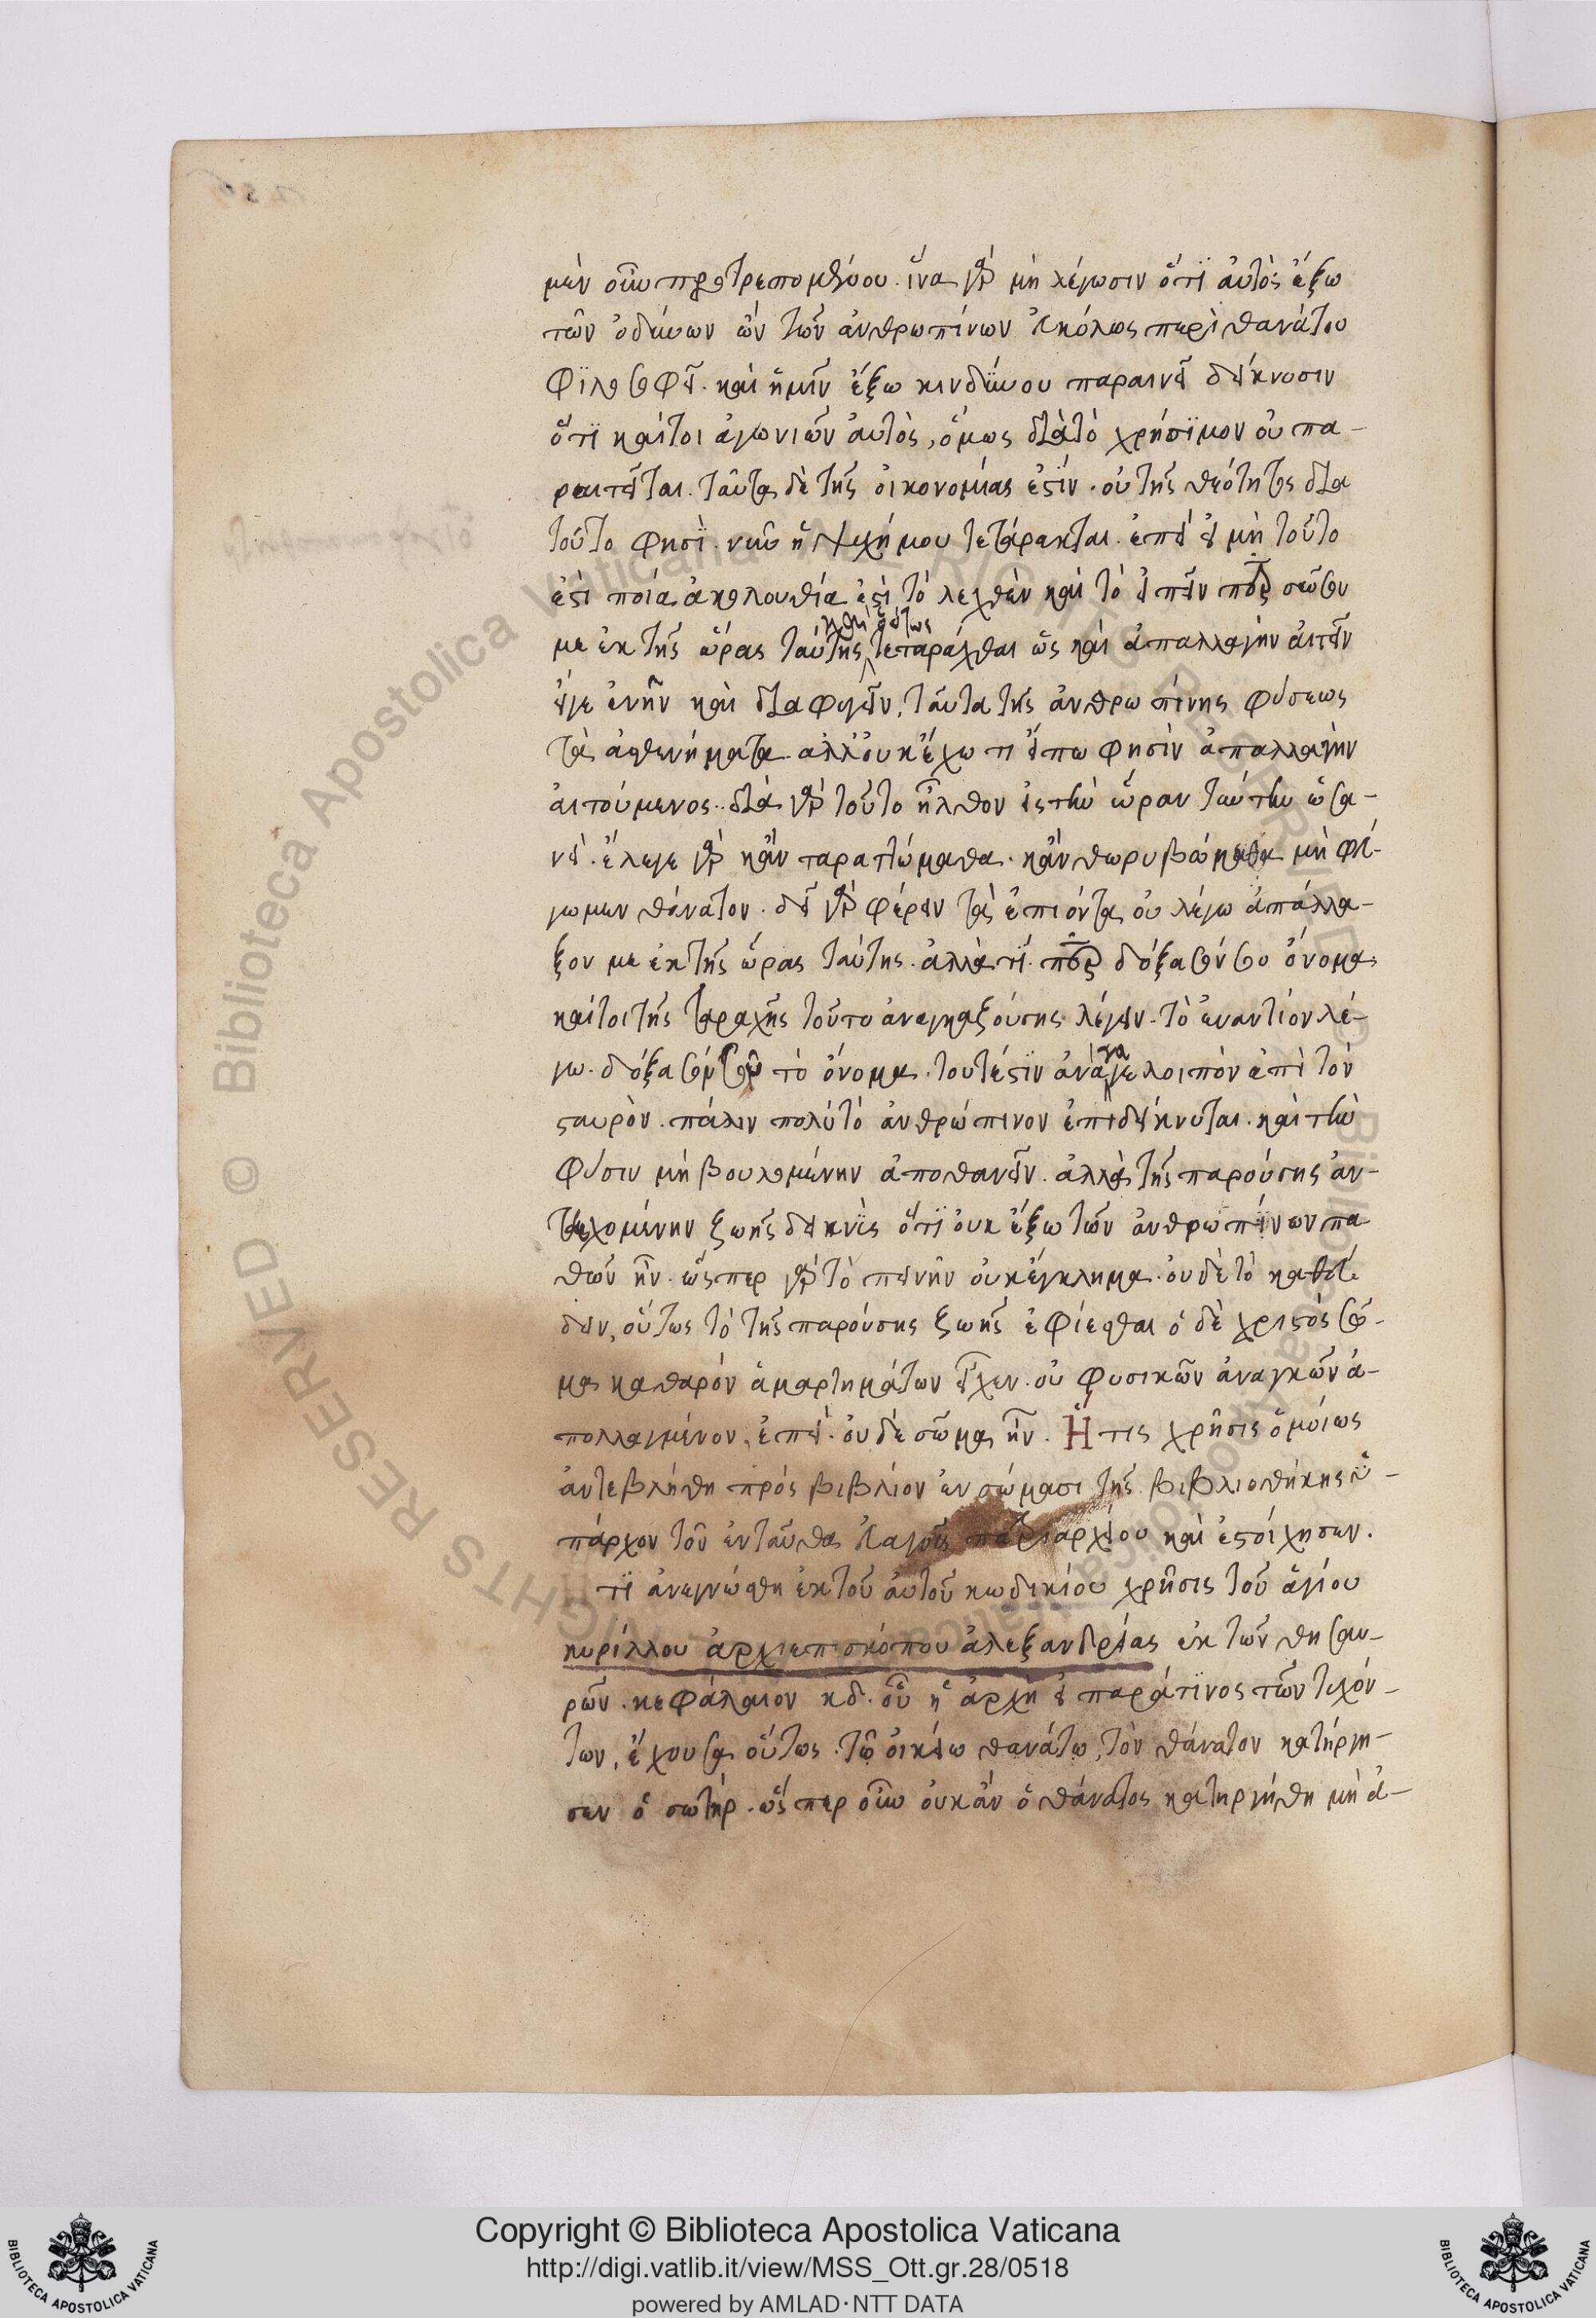 μὲν οὖν προτρεπομένου. ἵνα γὰρ μὴ λέγωσιν ὅτι αὐτὸς ἔξω
τῶν ὀδύνων ὢν τῶν ἀνθρωπίνων εὐκόλως περὶ θανάτου
φϊλοσοφεῖ. καὶ ἡμῖν ἔξω κινδύνου παραινεῖ δείκνυσιν
ὅτϊ καίτοι ἀγωνιῶν αὐτὸς, ὅμως διὰ τὸ χρήσϊμον οὐ πα-
ραιτεῖται. ταῦτα δὲ τῆς οἰκονομίας ἐστίν. οὐ τῆς θεότητος δια
τοῦτο φησΐ. νῦν ἡ ψυχή μου τετάρακται. ἐπεὶ εἰ μὴ τοῦτο
ἐστὶ ποία ἀκολουθία ἐστὶ τὸ λεχθὲν καὶ τὸ εἰπεῖν περ σῶσον
με ἐκ τῆς ὥρας ταύτης καὶ οὕτως τεταράχθαι ὡς καὶ ἀπαλλαγὴν αἰτεῖν
εἴγε ἐνῆν καὶ διαφυγεῖν. ταῦτα τῆς ἀνθρωπίνης φύσεως
τὰ ἀσθενήματα. ἀλλ' οὐκ ἔχω τι εἴπω φησὶν ἀπαλλαγὴν
αἰτούμενος. διὰ γὰρ τοῦτο ἦλθον εἰς τὴν ὥραν ταύτην ὡσα-
νεὶ. ἔλεγε γὰρ κἂν ταραττώμεθα. κἂν θωρυβώμεθα μὴ φεύ-
γωμεν θάνατον. δεῖ γὰρ φέρειν τὰ ἐπιόντα οὐ λέγω ἀπάλλα-
ξον με ἐκ τῆς ὥρας ταύτης. ἀλλὰ τΐ. περ δόξασόν σου ὄνομα
καίτοι τῆς ταραχῆς τοῦτο ἀναγκαζούσης λέγειν. τὸ ἐναντίον λέ-
γω. δόξασόν σου τὸ ὄνομα. τουτέστιν ἀνάγαγε λοιπὸν ἐπὶ τὸν
σταυρὸν. πάλιν πολὺ τὸ ἀνθρώπινον ἐπιδείκνυται. καὶ τὴν
φύσιν μὴ βουλομένην ἀποθανεῖν. ἀλλὰ τῆς παρούσης ἀν-
τεχομένην ζωῆς δεικνὺς ὅτϊ οὐκ ἔξω τῶν ἀνθρωπίνων πα
θῶν ἦν. ὥσπερ γὰρ τὸ πεινῆν οὐκ ἔγκλημα. οὐδὲ τὸ καθεύ
δειν, οὕτως τὸ τῆς παρούσης ζωῆς ἐφίεσθαι ὁ δὲ χριστὸς σῶ-
μα καθαρὸν ἁμαρτημάτων εἶχεν. οὐ φυσικῶν ἀναγκῶν ἀ-
πολλαγμένον, ἐπεὶ. οὐδὲ σῶμα ἦν. Ἥ τις χρῆσις ὁμοίως
ἀντεβλήθη πρὸς βιβλίον ἐν σώμασι τῆς βιβλιοθήκης ὑ-
πάρχον τοῦ ἐνταῦθα εὐαγοῦς πατριαρχείου καὶ ἐστοίχησεν.
τϊ ἀνεγνώσθη ἐκ τοῦ αὐτοῦ κωδικίου χρῆσις τοῦ ἁγίου
κυρίλλου ἀρχιεπισκόπου ἀλεξανδρείας ἐκ τῶν θησαυ-
ρῶν. κεφάλαιον κδ. οὗ ἡ ἀρχὴ εἰ παρά τϊνος τῶν τυχόν-
των, ἔχουσα οὕτως. τῷ οἰκείῳ θανάτῳ, τὸν θάνατον κατήργη-
σεν ὁ σωτήρ. ὥσπερ οὖν οὐκ ἂν ὁ θάνατος κατηργήθη μὴ ἀ-
Copyright © Biblioteca Apostolica Vaticana
http://digi.vatlib.it/view/MSS_Ott.gr.28/0518
powered by AMLAD·NTT DATA